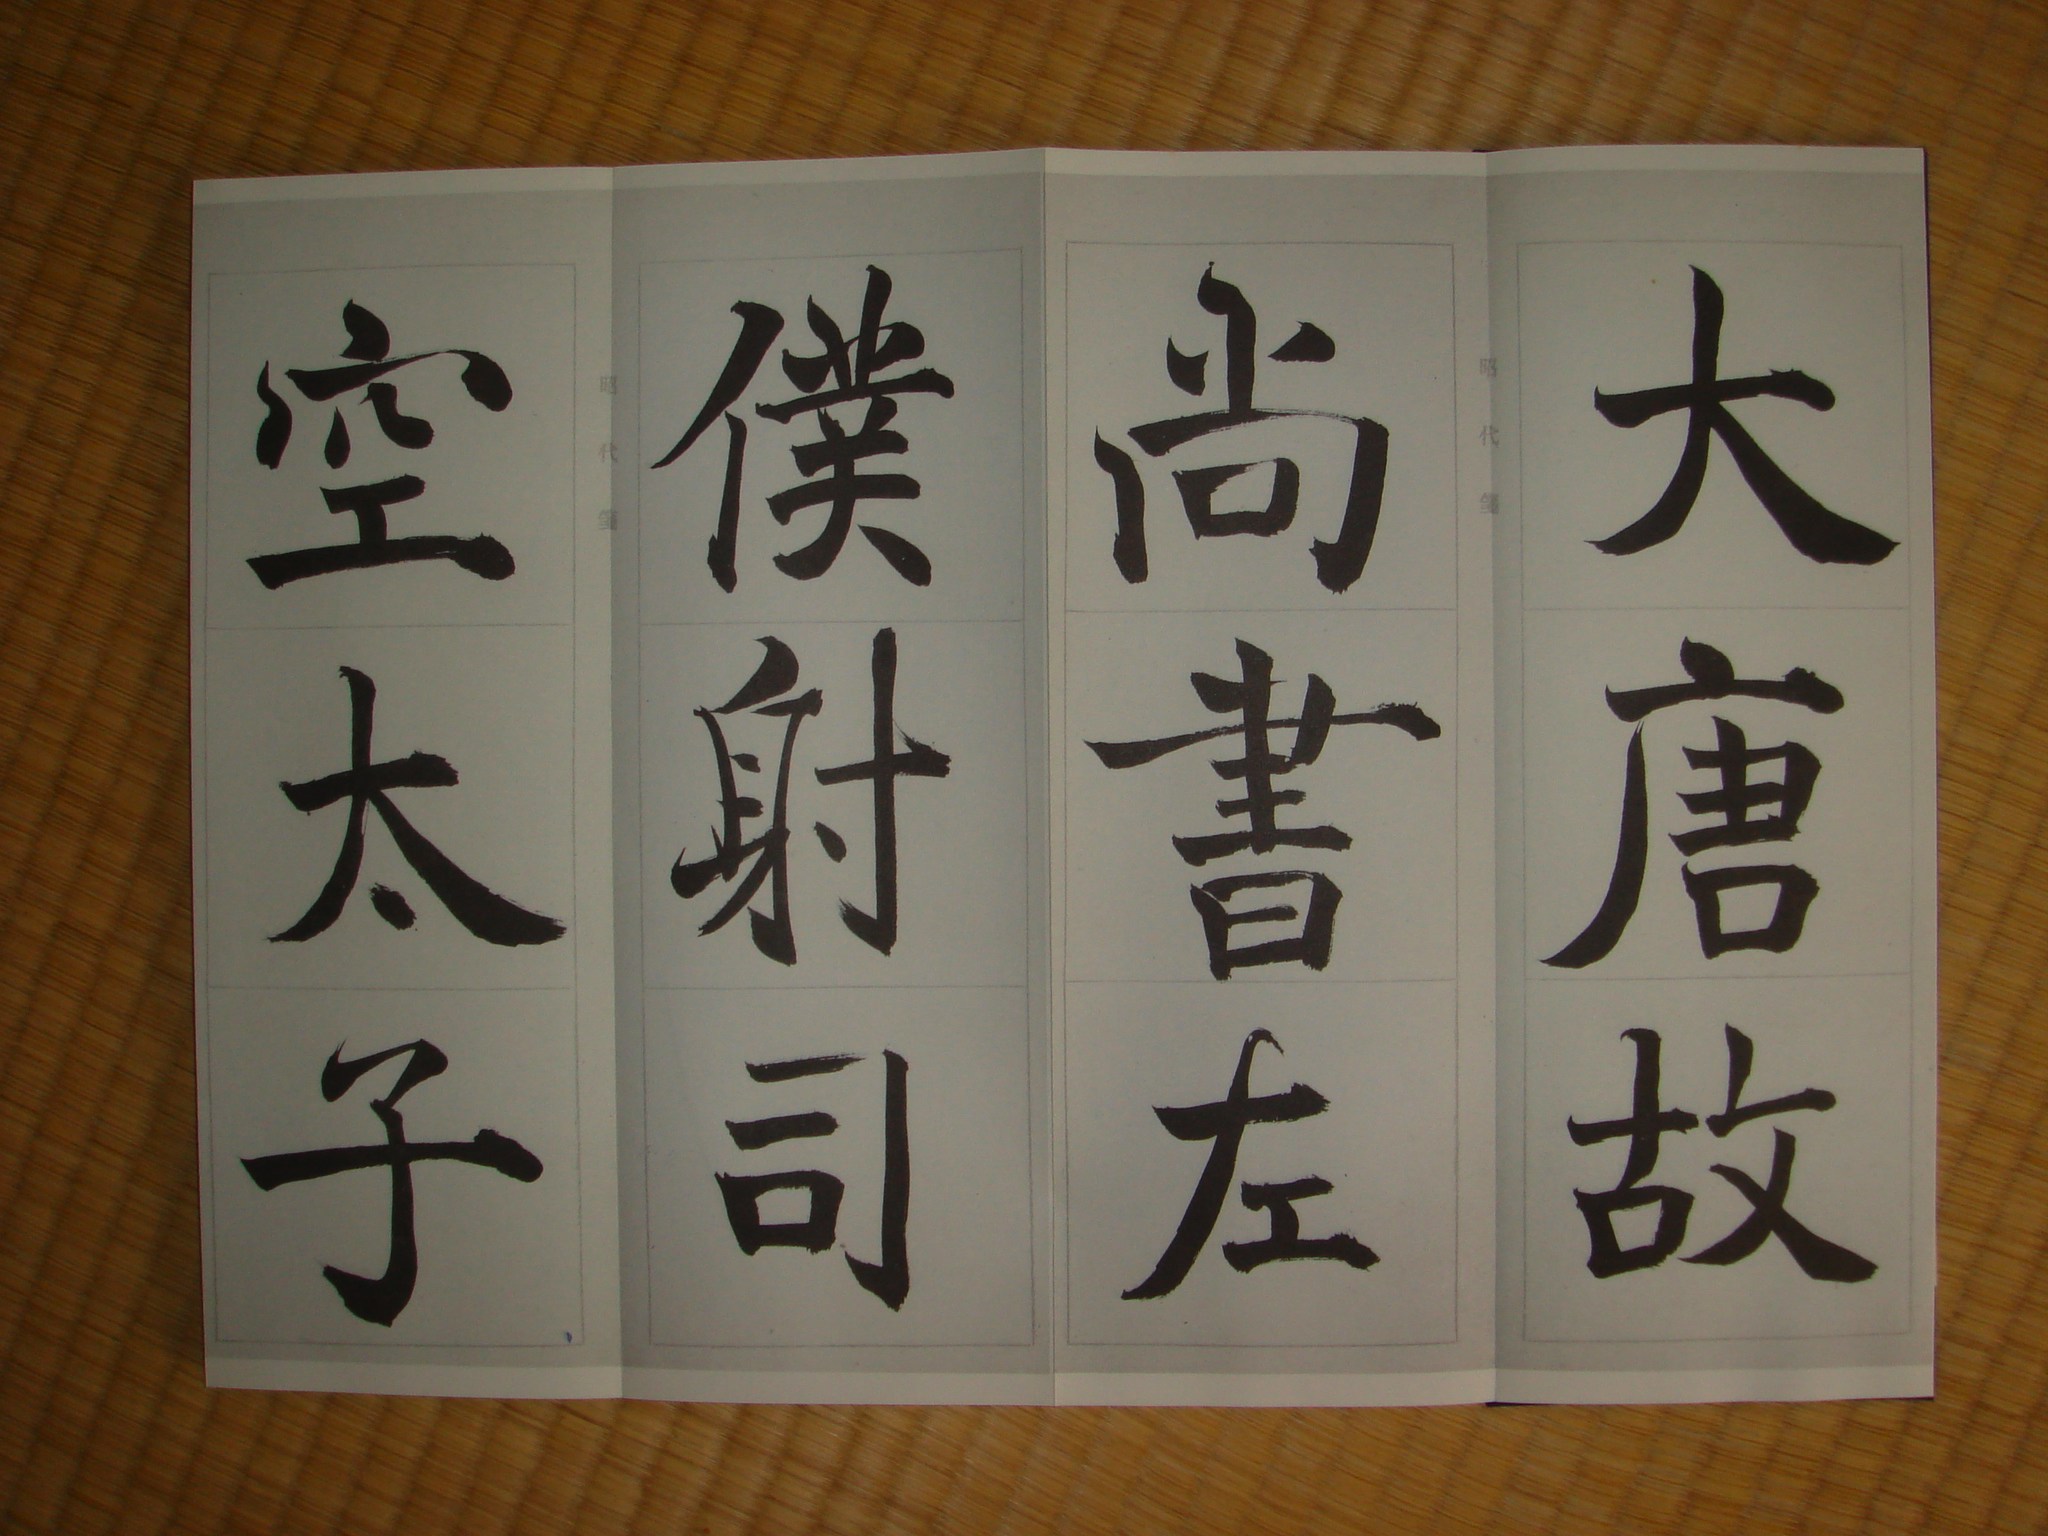 大唐故
尚書左
僕射司
空太子
昭代箋
昭代箋